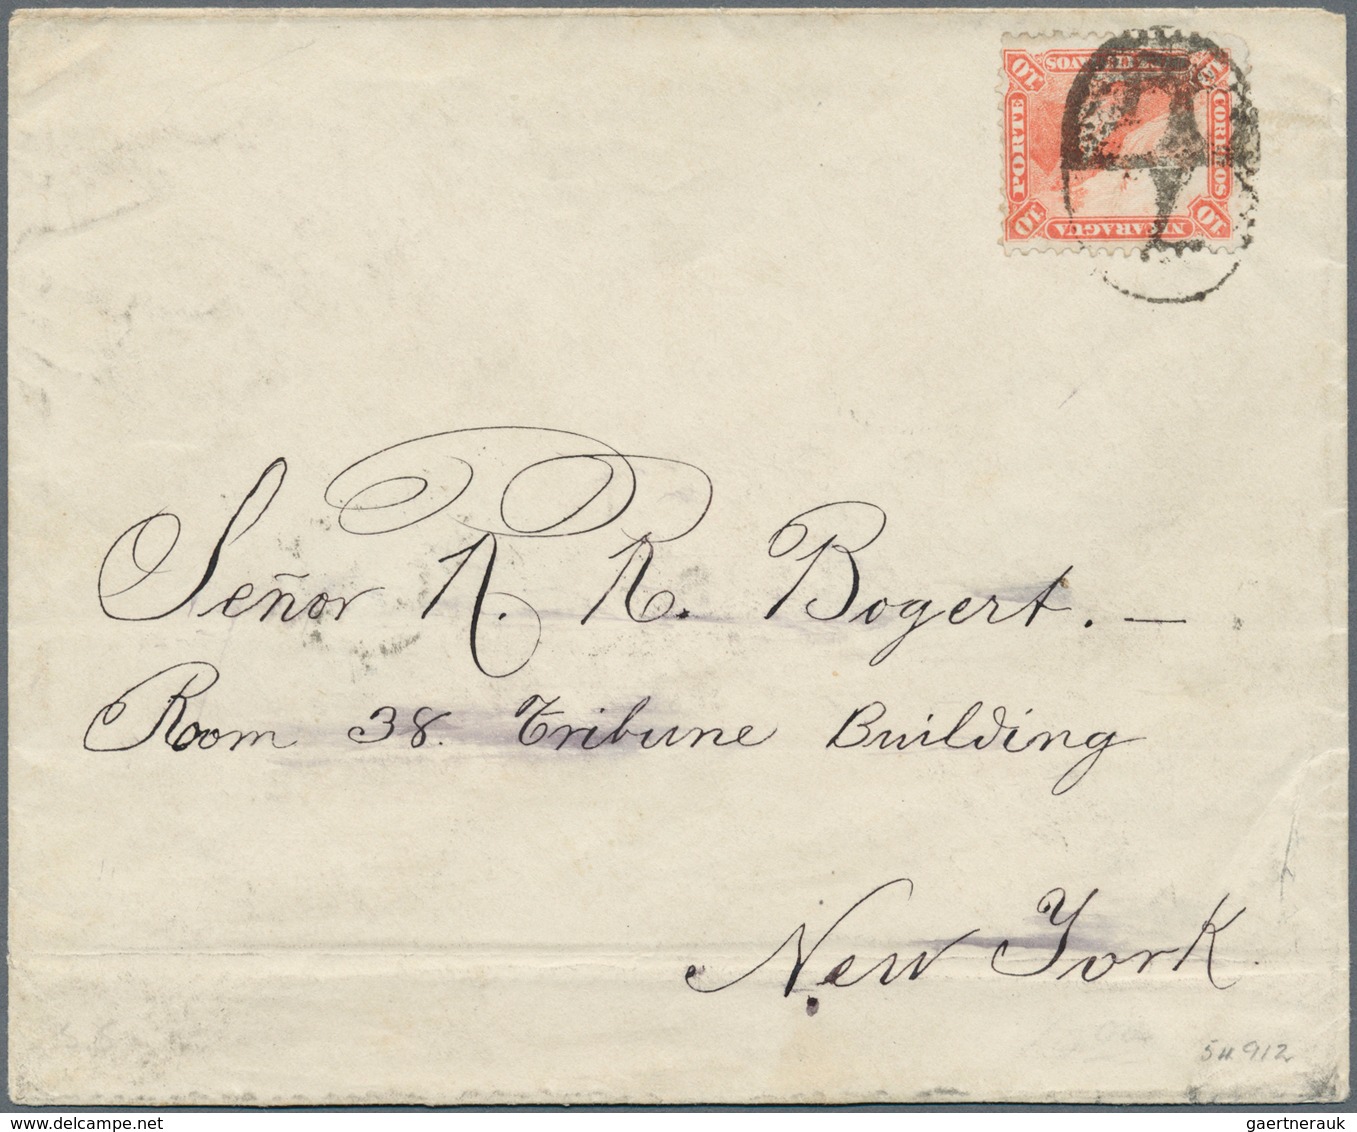 NICARAGUA
PORTE
CORREOS
10
10
10
Señor R. R. Bogert. —
Room 38. Tribune Building
New York.
54912
delcampe.net
gaertnerauk